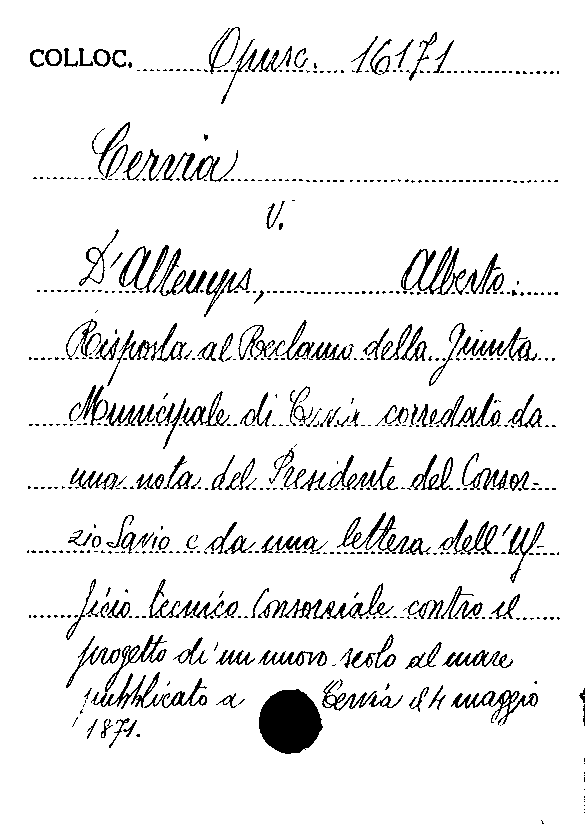 COLLOC. Opusc. 16171
Cervia
V.
D'Altemps, Alberto:
Risposta al Reclamo della Giunta
Municipale di Cervia corredato da
una nota del Presidente del Consor-
zio Savio e da una lettera dell'Uf-
ficio tecnico Consorziale contro il
progetto di un nuovo scolo al mare
pubblicato a Cervia il 4 maggio
1871.